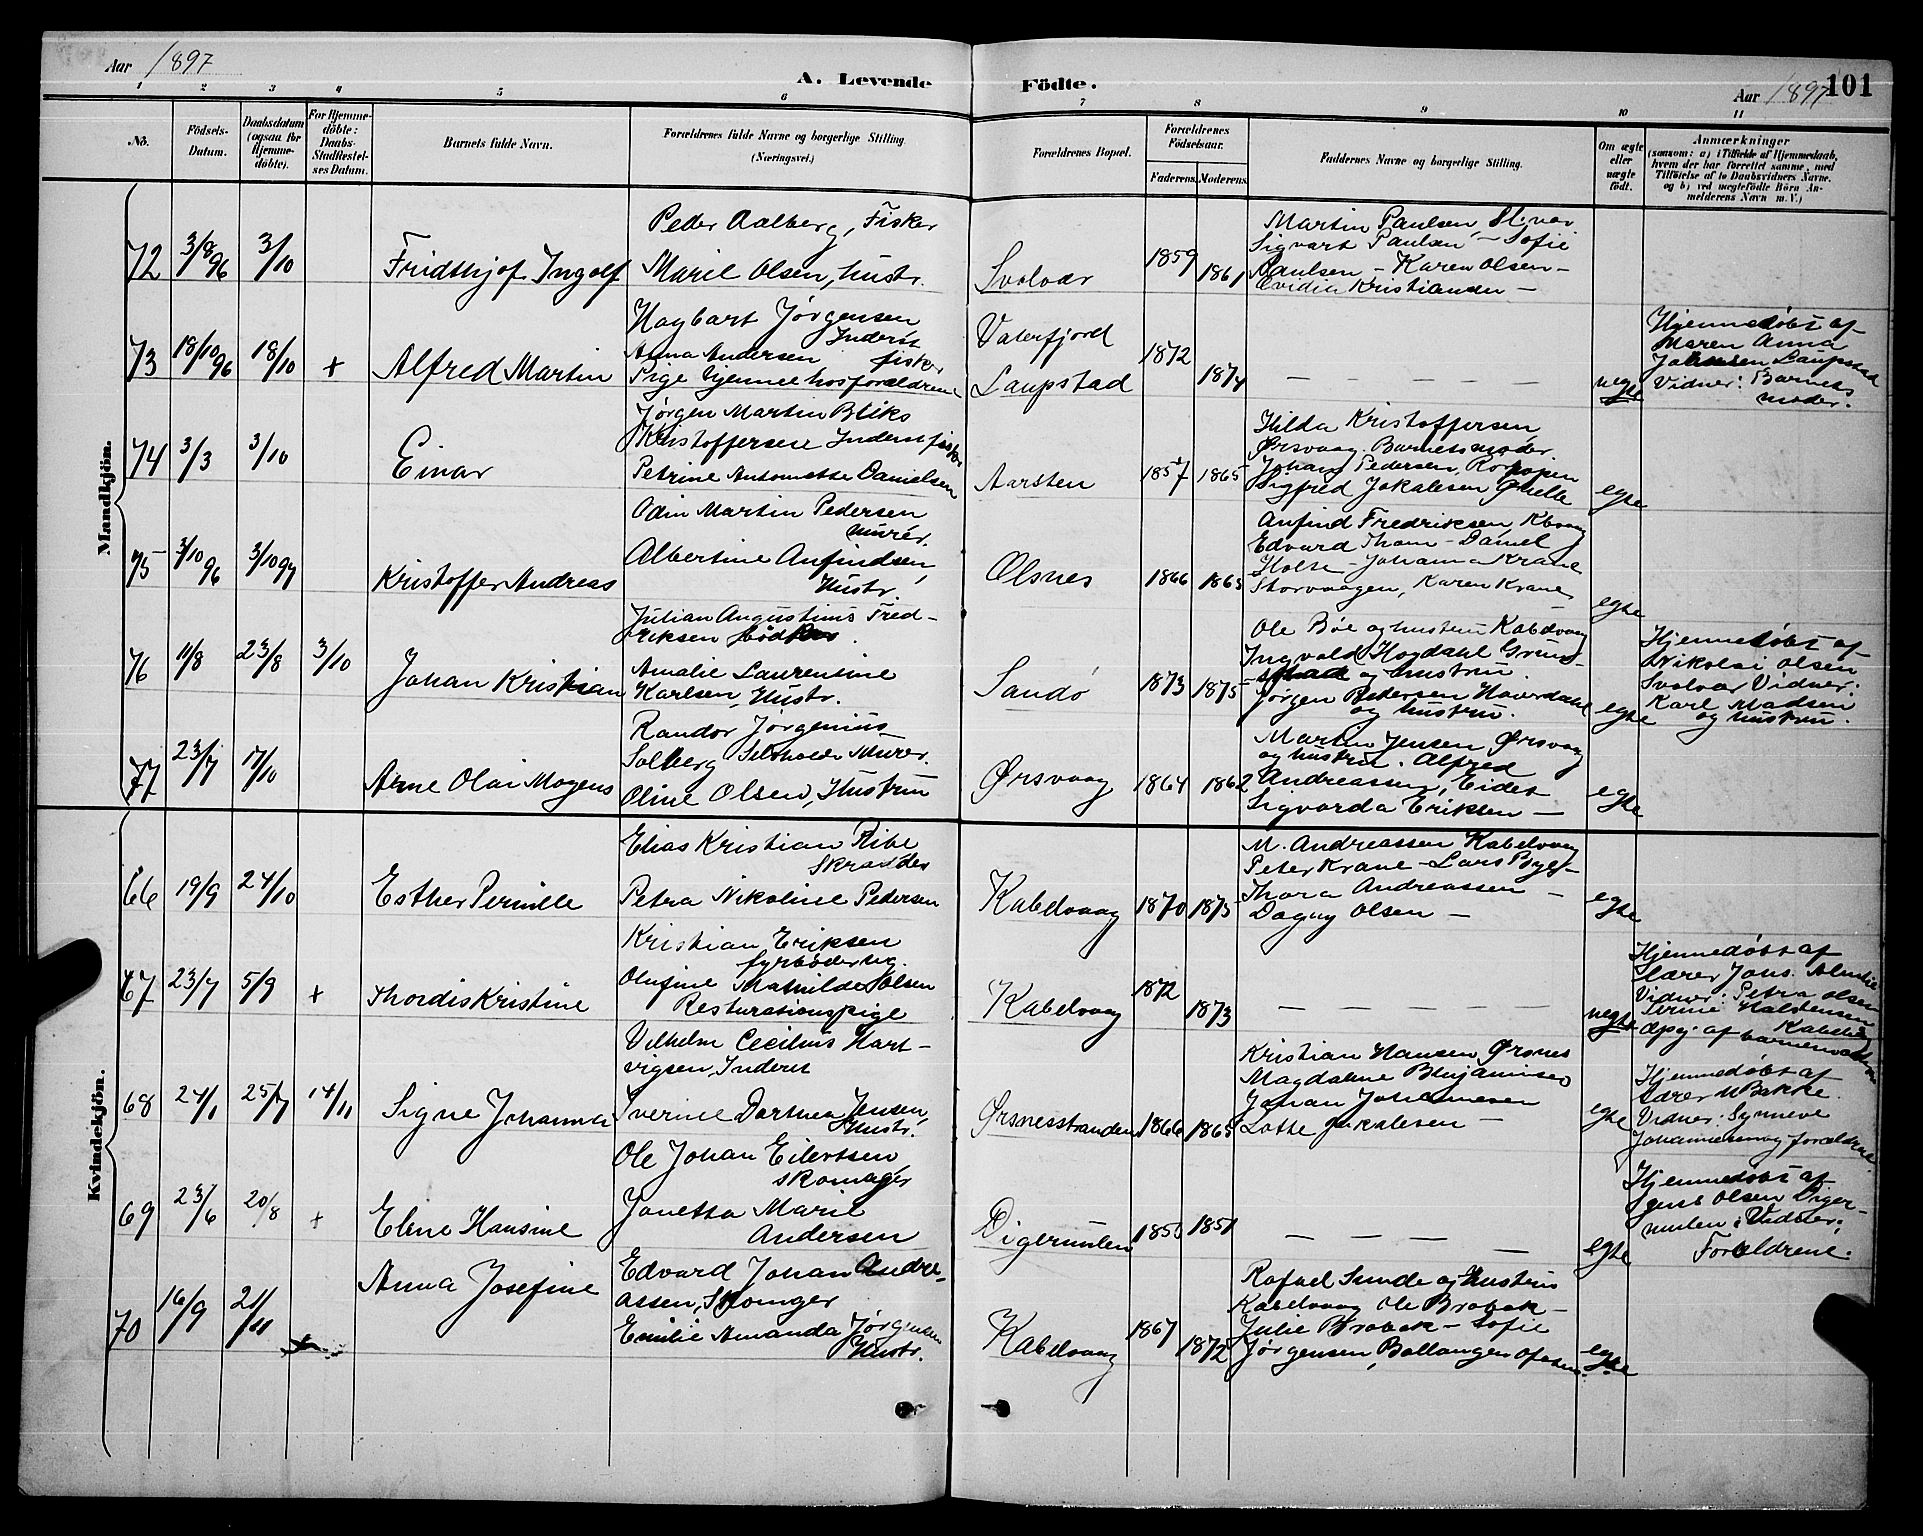 Aar 1897
A. Levende
Födte.
Aar 1897
101
1 2 3 4 5 6 7 8 9 10 11
No.
Födsels-
Datum.
Daabsdatum
(ogsaa for
Hjemme-
döbte).
For Hjemme-
döbte:
Daabs-
Stadfæstel-
ses Datum.
Barnets fulde Navn.
Forældrenes fulde Navne og borgerlige Stilling
(Næringsvei.)
Forældrenes Bopæl.
Forældrenes
Födselsaar.
Faderens. Moderens.
Faddernes Navne og borgerlige Stilling.
Om ægte
eller
uægte
födt.
Anmærkninger
(saasom: a) i Tilfælde af Hjemmedaab,
hvem der har forrettet samme, med
Tilföielse af to Daabsvidners Navne,
og b) ved uægtefödte Börn An-
melderens Navn m. V.)
Mandkjön.
72 3/8 96 3/10 Fridthjof Ingolf
Peder Aalberg, Fisker
Marie Olsen, Hustr.
Svolvær 1859 1861
Martin Paulsen,
Sigvart Paulsen – Sofie
Paulsen – Karen Olsen –
73 18/10 96 18/10 + Alfred Martin
Hagbart Jørgensen
Inderst
Anna Andersen fisker
Pige hjemme hos forældrene
Vaterfjord
Laupstad
1872 1874
– – – – –
uegte
Hjemmedøbt af
Maren Anna
Johnsen Laupstad
Vidner: Barnets
moder.
74 3/3 3/10 Einar
Jørgen Martin Bliks
Kristoffersen Inderst fisker
Petrine Antonette Danielsen
Aarsten 1857 1865
Hilda Kristoffersen
Ørsvaag. Barnets moder.
Johan Pedersen, Rorhopen
Sigfred Jakobsen,
egte
75 3/10 96 3/10 97 Kristoffer Andreas
Odin Martin Pedersen
Murer.
Albertine Anfindsen,
Hustr.
Olsnes 1866 1865
Anfind Fredriksen Kbvaag
Edvard Thom – Daniel
Holte – Johanna Krane
Storvaagen, Karen Krane
egte
76 11/8 23/8 3/10 Johan Kristian
Julian Augustinus Fred-
riksen
Amalie Laurentine
Karlsen, Hustr.
Sandø 1873 1875
Ole Bøe og hustru Kabelvaag
Ingvald Hogdahl
og hustru.
Jørgen Pedersen
og hustru.
egte
Hjemmedøbt af
Nikolai Olsen
Svolvær Vidner:
Karl Madsen
og hustru.
77 23/7 17/10 Arne Olai Mogens
Randor Jørgenius
Solberg Murer.
Oline Olsen, Hustru
Ørsvaag 1864 1862
Martin Jensen Ørsvaag
og hustru. Alfred
Andreassen, Eidet
Sigvarda Eriksen –
egte
Kvindekjön.
66 19/9 24/10 Esther Pernille
Elias Kristian Ribe
Skræder
Petra Nikoline Pedersen
Kabelvaag 1870 1875
M. Andreassen Kabelvaag
Peter Krane – Lars
Thora Andreassen –
Dagny Olsen –
egte
67 23/7 5/9 + Thordis Kristine
Kristian Eriksen
fyrbøder ug.
Olufine Mathilde Olsen
Resturationspige
Kabelvaag
1872 1873
– – – –
uegte
Hjemmedøbt af
Lærer Johs.
Vidner: Petra Olsen
Kabelvaag
Opg. af barnemoderen
68 24/1 25/7 14/11 Signe Johanna
Vilhelm Cecilius Hart-
vigsen, Inderst
Sverine Dorthea Jensen,
Hustr.
Ørsnesstranden 1866 1865
Kristian Hansen Ørsnes
Magdalene Benjaminsen
Johan Johannesen
Lotte Jakobsen –
egte
Hjemmedøbt af
Lærer M Bakke.
Vidner: Synneve
Johannesen og forældrene.
69 23/6 20/8 + Eline Hansine
Ole Johan Eilertsen
Skomager
Janetta Marie
Andersen
Digermulen 1855 1851
– – – –
egte
Hjemmedøbt af
Olsen Diger-
mulen. Vidner:
Forældrene.
70 16/9 21/11 Anna Josefine
Edvard Johan Andre-
assen, Skomager
Emilie Amanda Jørgensen
Hustr.
Kabelvaag 1867 1872
Rafael Sunde og hustru
Kabelvaag Ole Brobak –
Julie Brobak – Sofie
Jørgensen, Ballangen Ofoten.
egte